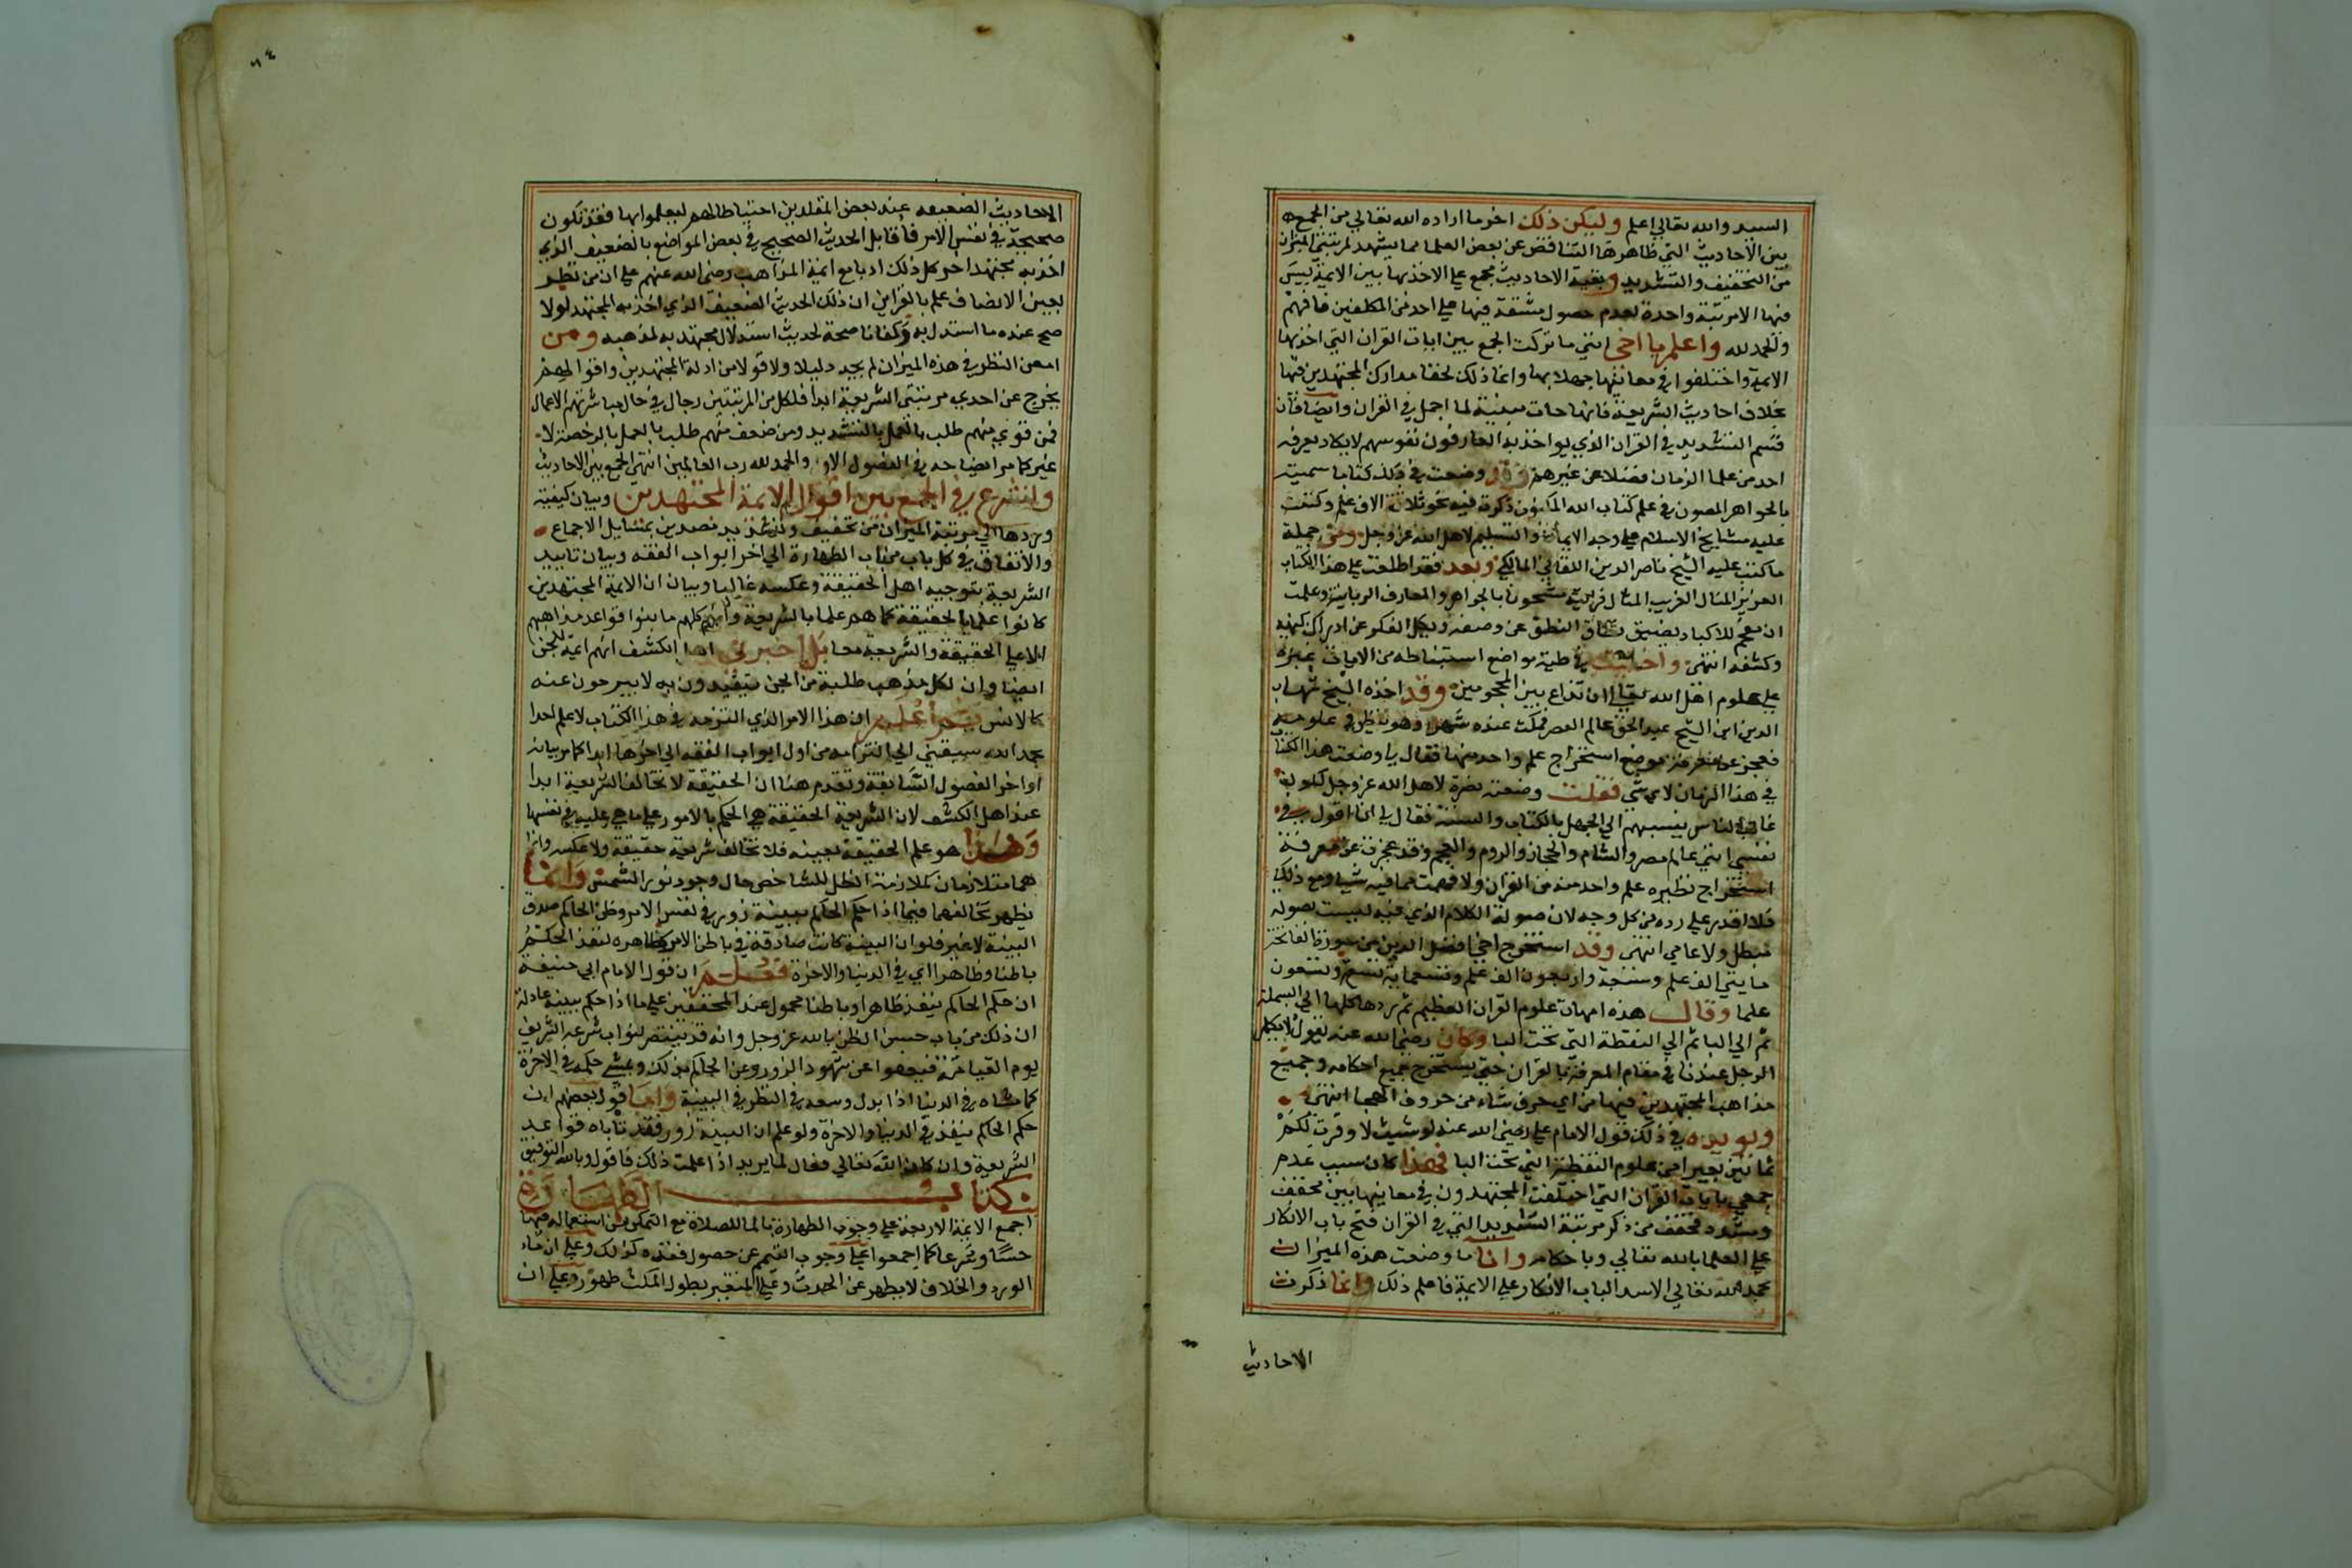 السيد والله تعالى اعلم وليكن ذلك اخر ما اراده الله تعالى من الجمع
بين الاحاديث التي ظاهرها التناقض عن بعض العلما مما يشهد لمرتبتي الميزان
من التخفيف والتشديد وبقية الاحاديث مجمع على الاخذ بها بين الايمة ليس
فيها الا مرتبة واحدة لعدم حصول مشقة فيها على احد من المكلفين فافهم
والحمد لله واعلم يا اخي انني ما تركت الجمع بين ايات القران التي اخذ بها
الايمة واختلفوا في معانيها جهلا بها وانما ذلك لخفا مدارك المجتهدين فيها
بخلاف احاديث الشريعة فانها جات مبينة لما اجمل في القران وايضا فان
قسم التشديد في القران الذي يواخذ به العارفون نفوسهم لا يكاد يعرفه
احد من علما الزمان فضلا عن غيرهم وقد وضعت في ذلك كتابا سميته
بالجواهر المصون في علم كتاب الله المكنون ذكرت فيه نحو ثلاثة الاف علم وكتبت
عليه مشايخ الاسلام على وجه الايمان والتسليم لاهل الله عز وجل ومن جملة
ما كتب عليه الشيخ ناصر الدين اللقاني المالكي وبعد فقد اطلعت على هذا الكتاب
العزيز المنال الغريب المثال فرايته مشحونا بالجواهر والمعارف الربانية وعلمت
ان يضيق نطاق النطق عن وصفه ويكل الفكر عن ادراك كنهه
وكشفه انتهى واخفيت في طيه مواضع استنباطه من الايات غيرة
على علوم اهل الله تعالى ان تذاع بين المحجوبين وقد اخذه الشيخ شهاب
الدين ابن الشيخ عبد الحق عالم العصر فمكث عنده شهرا وهو ينظر في علومه
فعجز عن معرفة موضع استخراج علم واحد منها فقال لي وضعت هذا الكتاب
في هذا الزمان لاي شي فقلت وضعته نصرة لاهل الله عز وجل لكون
غالب الناس ينسبهم الى الجهل بالكتاب والسنة فقال لي انا اقول في
نفسي انني عالم مصر والشام والحجاز والروم والعجم وقد عجزت عن معرفة
استخراج نظيره علم واحد منه من القران ولا فهمت مما فيه شيا ومع ذلك
فلا اقدر على رده من كل وجه لان صولة الكلام الذي فيه ليست بصولة
مبطل ولا عامي انتهى وقد استخرج اخي افضل الدين من سورة الفاتحة
مايتي الف علم وسبعة واربعون الف علم وتسعماية تسعة وتسعون
علما وقال هذه امهات علوم القران العظيم ثم ردها كلها الى البسملة
ثم الى البا ثم الى النقطة التي تحت البا وكان رضي الله عنه يقول لا يكمل
الرجل عندنا في مقام المعرفة بالقران حتى يستخرج جميع احكامه وجميع
مذاهب المجتهدين فيها من اي حرف شاء من حروف الهجا انتهى
ويويده في ذلك قول الامام علي رضي الله عنه لو شيت لاوقرت لكم
ثمانين بعيرا من علوم النقطة التي تحت البا فهذا كان سبب عدم
جمعي بايات القران التي اختلفت المجتهدون في معانيها بين مخفف
ومشدد فخفت من ذكر مرتبة التشديد التي في القران فتح باب الانكار
على العلما بالله تعالى وباحكامه وانا ما وضعت هذه الميزان
بحمد الله تعالى الا سد الباب الانكار على الايمة فاعلم ذلك وانما ذكرت
الاحاديث
٦٤
الاحاديث الضعيفة عند بعض المقلدين احتياطا لهم ليعملوا بها فقد تكون
صحيحة في نفس الامر فاقابل الحديث الصحيح في بعض المواضع بالضعيف الذي
اخذ به مجتهد اخر كل ذلك ادبا مع ايمة المذاهب رضي الله عنهم على ان من نظر
بعين الانصاف علم بالقراين ان ذلك الحديث الضعيف الذي اخذ به المجتهد لولا
صح عنده ما استدل به وكفانا صحة لحديث استدلال مجتهد به لمذهبه ومن
امعن النظر في هذه الميزان لم يجد دليلا ولا قولا من ادلة المجتهدين واقوالهم
يخرج عن احدي مرتبتي الشريعة ابدا فلكل من المرتبتين رجال في حال مباشرتهم الاعمال
فمن قوي منهم طلب بالعمل بالتشديد ومن ضعف منهم طلب بالعمل بالرخصة لا
غير كما مر ايضاحه في الفصول الاول والحمد لله رب العالمين انتهى الجمع بين الاحاديث
ولنشرع في الجمع بين اقوال الايمة المجتهدين وبيان كيفية
وردها الى مرتبة الميزان من تخفيف وتشديد مصدرين بمسايل الاجماع
والاتفاق في كل باب من باب الطهارة الى اخر ابواب الفقه وبيان تاييد
الشريعة بتوجيه اهل الحقيقة وعكسه غالبا وبيان ان الايمة المجتهدين
كانوا علما بالحقيقة كما هم علما بالشريعة وانهم كلهم ما بنوا قواعد مذاهبهم
الا على الحقيقة والشريعة معا بل اخبرني اهل الكشف انهم ايمة للجن
ايضا وان لكل مذهب طلبة من الجن يتقيدون به لا يبرحون عنه
كالانس ثم اعلم ان هذا الامر الذي التزمه في هذا الكتاب لا علم احدا
بحمد الله سبقني الى التزامه من اول ابواب الفقه الى اخرها ابدا كما مر بيانه
اواخر الفصول السابقة وتقدم هنا ان الحقيقة لا تخالف الشريعة ابدا
عند اهل الكشف لان الشريعة الحقيقة هي الحكم بالامور على ما هي عليه في نفسها
وهذا هو علم الحقيقة بعينه فلا تخالف شريعة حقيقة ولا عكسه وانما
هما متلازمان كملازمة الظل للشاخص حال وجود نور الشمس وانما
يظهر تخالفهما فيما اذا حكم الحاكم ببينة زور في نفس الامر وظن الحاكم صدق
البينة لا غير فلو ان البينة كانت صادقة في باطن الامر كظاهره لنفذ الحكم
باطنا وظاهرا اي في الدنيا والاخرة فعلم ان قول الامام ابي حنيفة
ان حكم الحاكم ينفذ ظاهرا وباطنا محمول عند المحققين على ما اذا حكم ببينة عادلة
ان ذلك من باب حسن الظن بالله عز وجل وانه قد ينتصر لنواب شرعه الشريف
يوم القيامة فيعفوا عن شهود الزور وعن الحاكم بذلك ويمشي حكمه في الاخرة
كما مشاه في الدنيا اذا بذل وسعه في النظر في البينة واما قول بعضهم ان
حكم الحاكم ينفذ في الدنيا والاخرة ولو علم ان البينة زور فقد تاباه قواعد
الشريعة وان كان الله تعالى فعال لما يريد اذا علمت ذلك فاقول وبالله التوفيق
كتاب الطهارة
اجمع الايمة الاربعة على وجوب الطهارة بالما للصلاة مع التمكن من استعماله فيها
حسا وشرعا كما اجمعوا على وجوب التيمم عن حصول فقده كذلك وعلى ان ماء
الورد والخلاف لا يطهر عن الحدث وعلى المتغير بطول المكث طهور وعلى ان